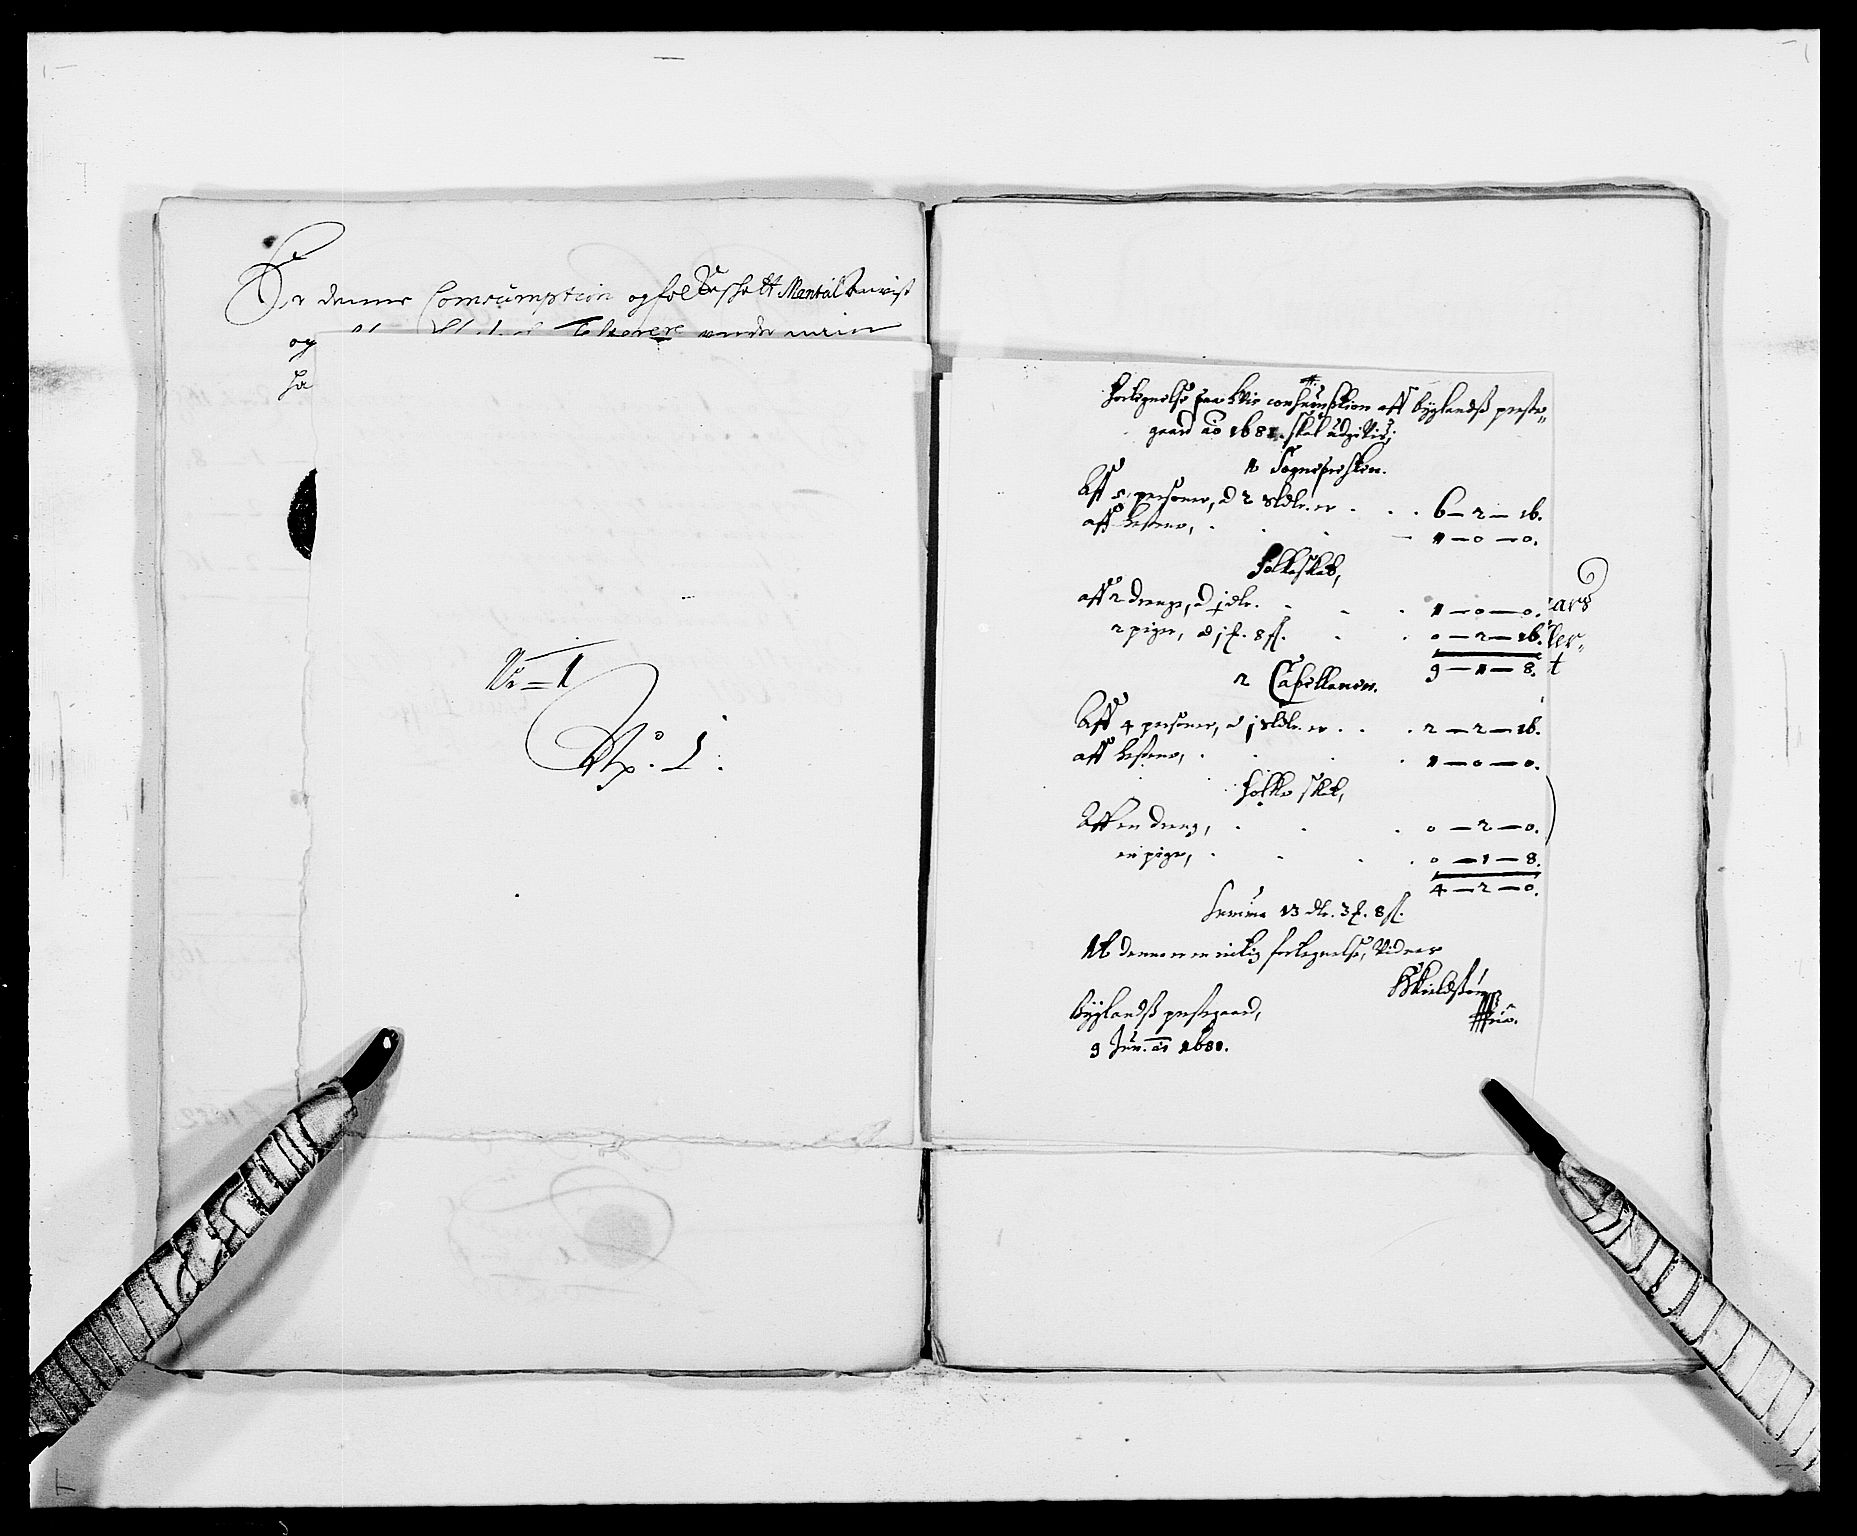 Er denne Consumption og folkeskatt Mantal
og
ha
No = 1
No. 1.
fortegnelse paa hvis consumption aff byglandß preste-
gaard ao 1681. skal udgifvis;
1 Sognepresten.
Aff 5 personer, à 2 sldlr. er . . . 6 — 2 — 16.
aff hestene, . . . 1 — 0 — 0.
folkeskat,
aff 2 drenge, à j dlr. . . . 1 — 0 — 0.
2 piger, à j ß. 8 ß. . . 0 — 2 — 16.
9 — 1 — 8.
2 Capellanen.
Aff 4 personer, à j sldlr. er . . . 2 — 2 — 16.
aff hestene, . . . 1 — 0 — 0.
folke skat,
Aff en dreng, . . . 0 — 2 — 0.
en pige, . . . 0 — 1 — 8.
4 — 2 — 0.
Summa 13 dlr. 3 ß. 8 ß.
At denne er en rictig fortegnelse, Vidner
byglandß prestegaard,
9 Jun. ao 1681.